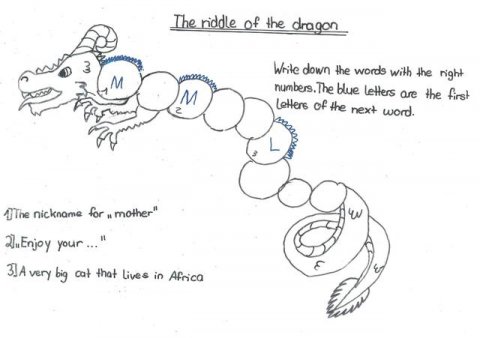 The riddle of the dragon
Write down the words with the right
numbers. The blue letters are the first
letters of the next word.
3
M
1
M
2
L
3
1] The nickname for „mother"
2] „Enjoy your ..."
3] A very big cat that lives in Africa